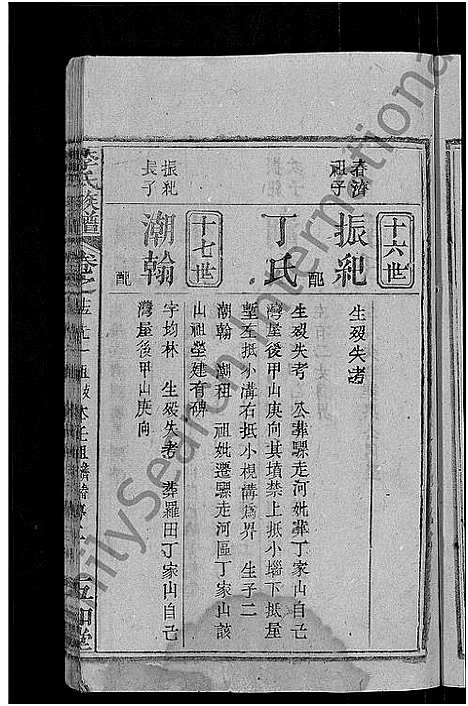 十六世
春濟
祖子
振紀
生歿失考
配
丁氏
生歿失考 公葬騾走河妣葬丁家山自己
灣屋後甲山庚向其墳禁上抵小墈下抵屋
墪左抵小溝右抵小梘溝為界 生子二
潮翰 潮租 祖妣遷騾走河區丁家山該
山祖塋建有碑
十七世
振紀
長子
潮翰
字均林 生歿失考 葬羅田丁家山自己
灣屋後甲山庚向
配
李氏族譜
卷之
FamilySearch International